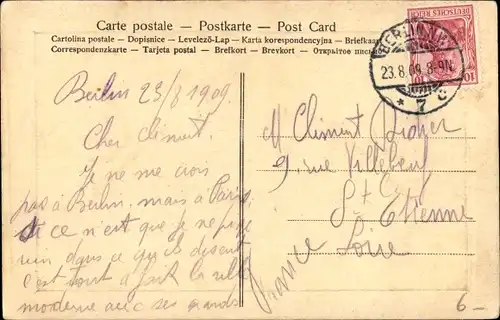 Carte postale – Postkarte – Post Card
Cartolina postale – Dopisnice – Levelező-Lap – Karta korespondencyjna – Briefkaart
Correspondenzkarte – Tarjeta postal – Brefkort – Brevkort – Открытое письмо
DEUTSCHES REICH
10 10
BERLIN
23.8.09. 8-9N.
* 7 c
Berlin 23/8 1909.
Cher Climent.
Je ne me crois
pas à Berlin, mais à Paris,
si ce n'est que je ne
rien dans ce qu'ils disent
c'est tout à fait la ville
moderne avec ses grands
M Climent Didier
9, rue Villebœuf
St Etienne
Loire
France
6 –